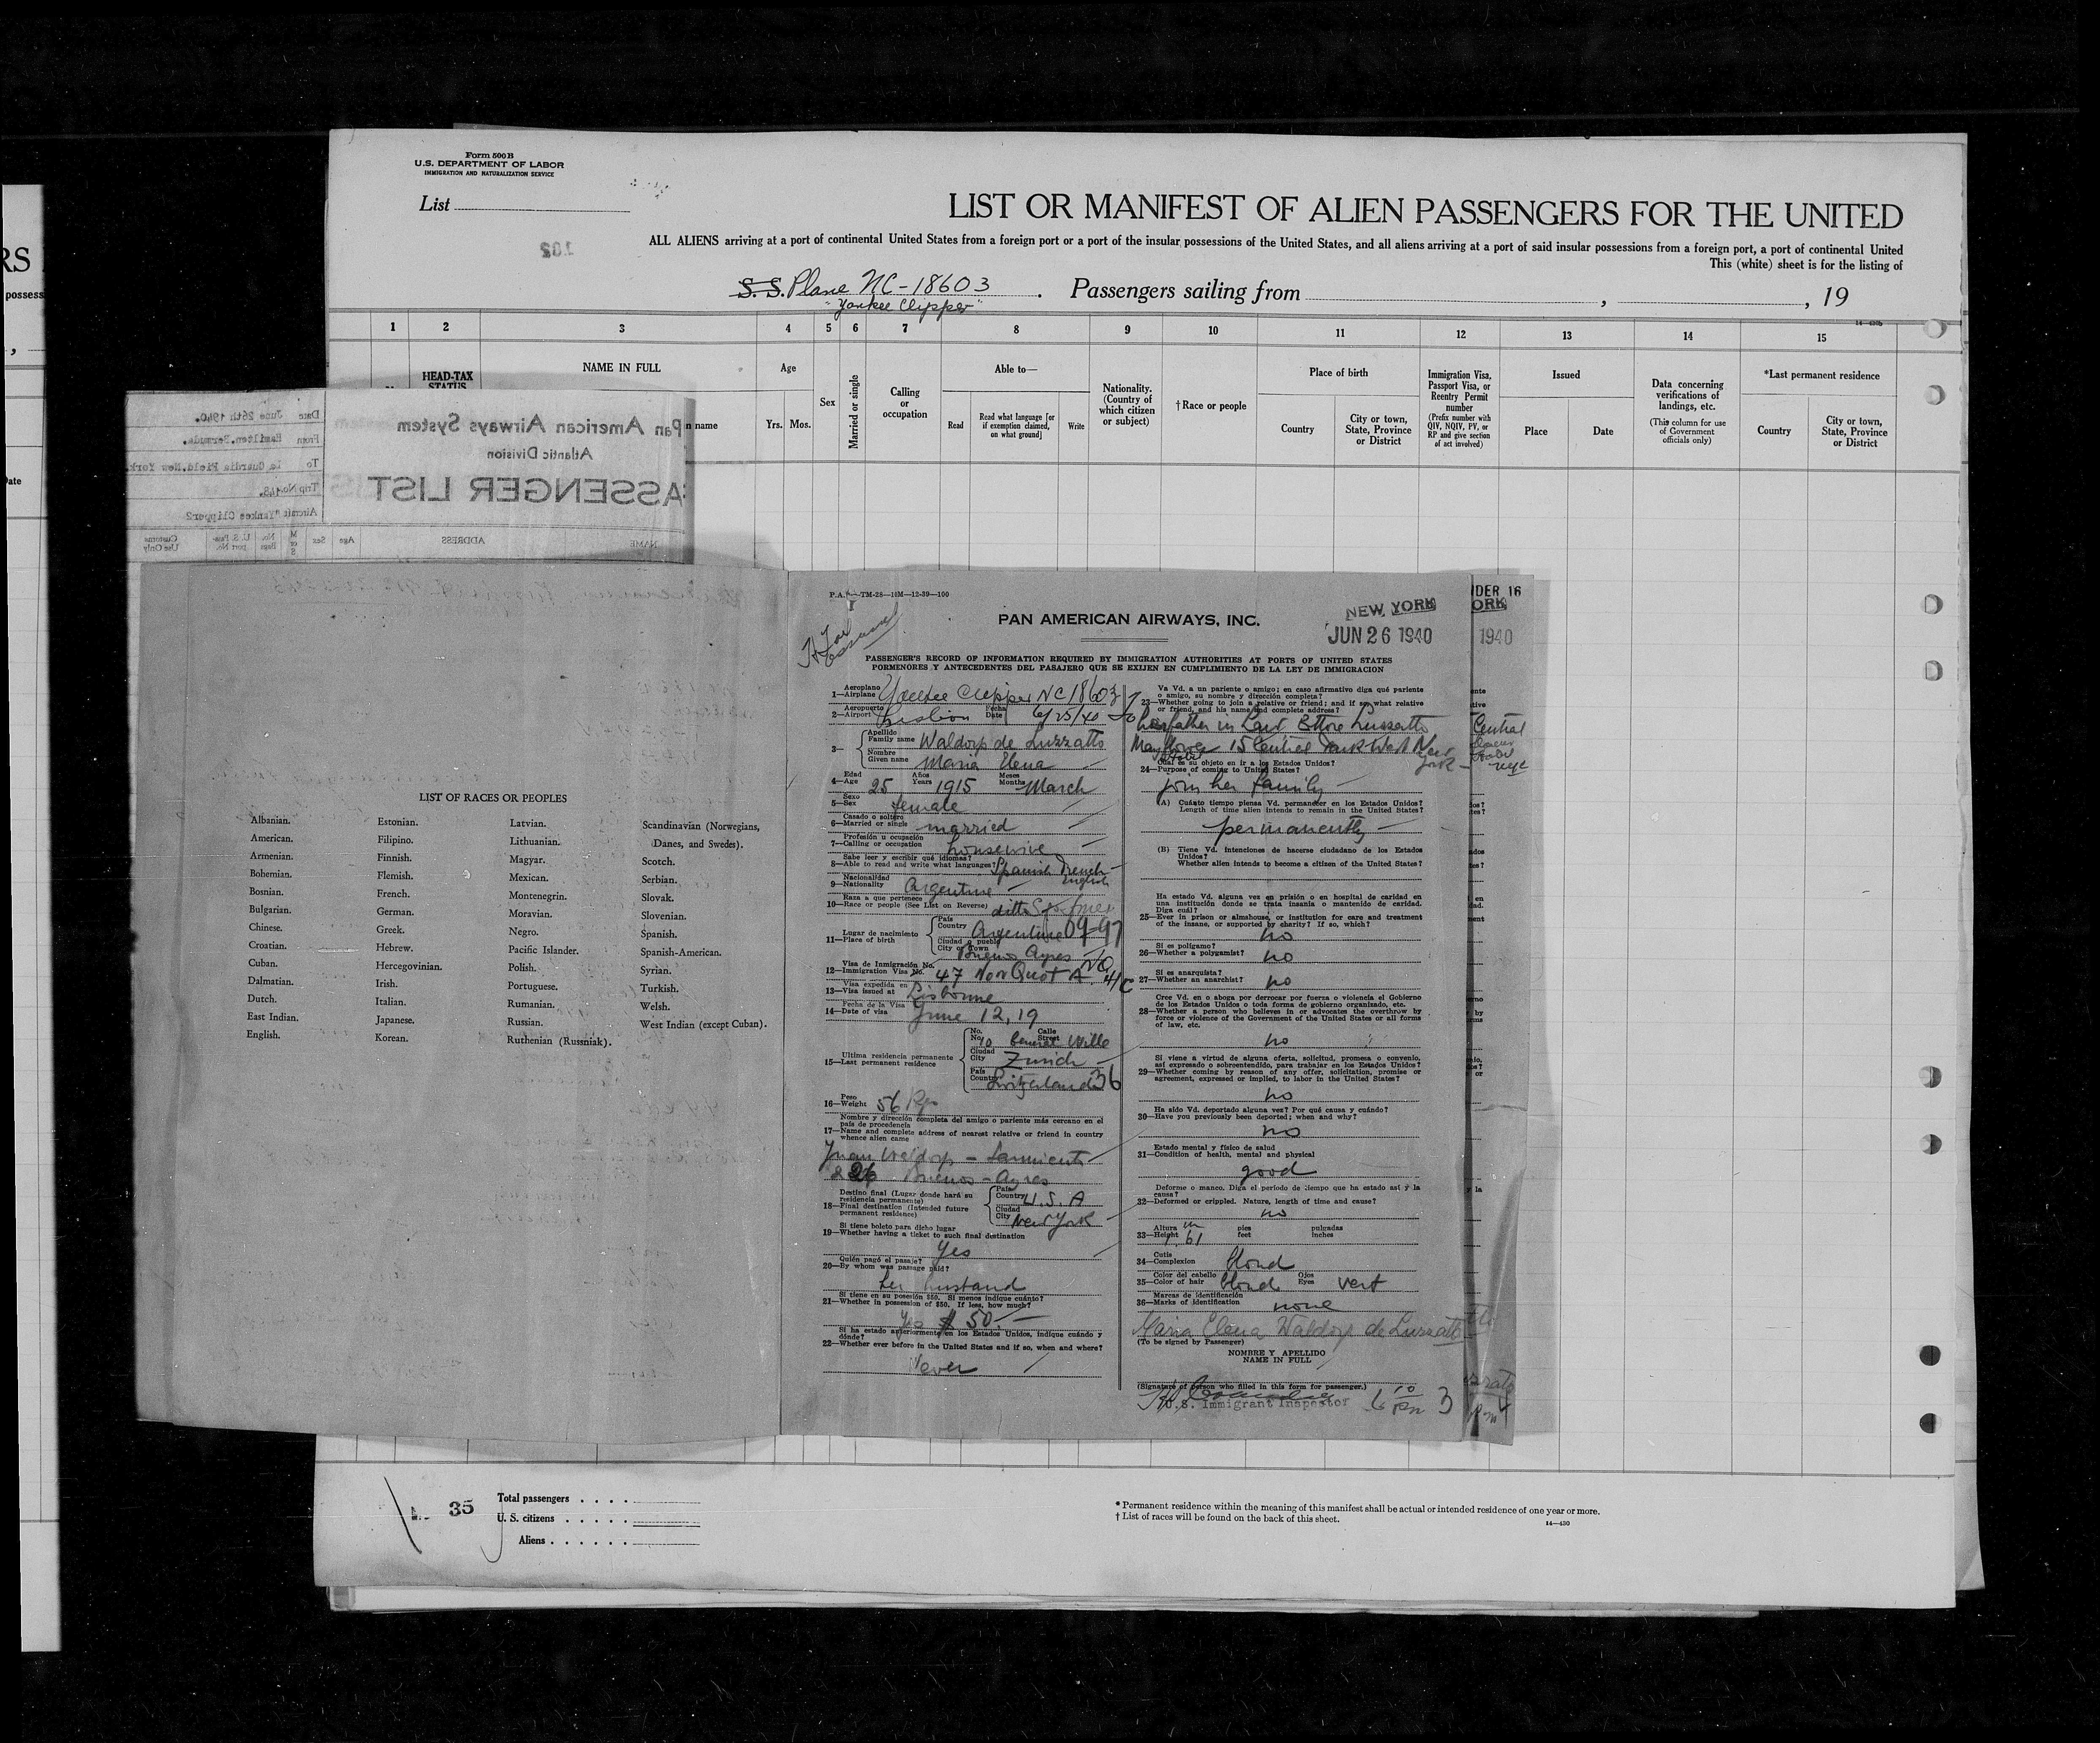 Form 500B
U.S. DEPARTMENT OF LABOR
IMMIGRATION AND NATURALIZATION SERVICE
List
LIST OR MANIFEST OF ALIEN PASSENGERS FOR THE UNITED
ALL ALIENS arriving at a port of continental United States from a foreign port or a port of the insular possessions of the United States, and all aliens arriving at a port of said insular possessions from a foreign port, a port of continental United
This (white) sheet is for the listing of
102
S. S. Plane NC-18603
"Yankee Clipper"
Passengers sailing from , , 19
1 2 3 4 5 6 7 8 9 10 11 12 13 14 15
HEAD-TAX
STATUS
NAME IN FULL
n name
Age
Yrs. Mos.
Sex
Married or single
Calling
or
occupation
Able to—
Read
Read what language [or
if exemption claimed,
on what ground]
Write
Nationality.
(Country of
which citizen
or subject)
†Race or people
Place of birth
Country
City or town,
State, Province
or District
Immigration Visa,
Passport Visa, or
Reentry Permit
number
(Prefix number with
QIV, NQIV, PV, or
RP and give section
of act involved)
Issued
Place
Date
Data concerning
verifications of
landings, etc.
(This column for use
of Government
officials only)
*Last permanent residence
Country
City or town,
State, Province
or District
Pan American Airways System
Atlantic Division
PASSENGER LIST
Date June 26th 1940.
From Hamilton.Bermuda.
To La Guardia Field.New York.
Trip No.
Aircraft "Yankee Clipper"
NAME ADDRESS Age Sex M or S No. Bags U. S. Pass-port No. Customs Use Only
LIST OF RACES OR PEOPLES
Albanian.
American.
Armenian.
Bohemian.
Bosnian.
Bulgarian.
Chinese.
Croatian.
Cuban.
Dalmatian.
Dutch.
East Indian.
English.
Estonian.
Filipino.
Finnish.
Flemish.
French.
German.
Greek.
Hebrew.
Hercegovinian.
Irish.
Italian.
Japanese.
Korean.
Latvian.
Lithuanian.
Magyar.
Mexican.
Montenegrin.
Moravian.
Negro.
Pacific Islander.
Polish.
Portuguese.
Rumanian.
Russian.
Ruthenian (Russniak).
Scandinavian (Norwegians,
Danes, and Swedes).
Scotch.
Serbian.
Slovak.
Slovenian.
Spanish.
Spanish-American.
Syrian.
Turkish.
Welsh.
West Indian (except Cuban).
PAN AMERICAN AIRWAYS, INC.
NEW YORK
JUN 26 1940
PASSENGER'S RECORD OF INFORMATION REQUIRED BY IMMIGRATION AUTHORITIES AT PORTS OF UNITED STATES
PORMENORES Y ANTECEDENTES DEL PASAJERO QUE SE EXIJEN EN CUMPLIMIENTO DE LA LEY DE IMMIGRACION
Aeroplano
1—Airplane Yankee Clipper NC 18603
Aeropuerto Fecha
2—Airport Lisbon Date 6/25/40
3—
Apellido
Family name Waldorp de Luzzatto
Nombre
Given name Maria Elena
Edad Años Meses
4—Age 25 Years 1915 Months March
Sexo
5—Sex female
Casado o soltero
6—Married or single married
Profesión u ocupación
7—Calling or occupation housewive
Sabe leer y escribir qué idiomas?
8—Able to read and write what languages? Spanish French
English
Nacionalidad
9—Nationality Argentine
Raza a que pertenece
10—Race or people (See List on Reverse) ditto
Lugar de nacimiento
11—Place of birth
País
Country Argentine
Ciudad o pueblo
City or Town Buenos Ayres
Visa de Inmigración No.
12—Immigration Visa No. 47 Non Quot
Visa expedida en
13—Visa issued at Lisbonne
Fecha de la Visa
14—Date of visa June 12, 19
Ultima residencia permanente
15—Last permanent residence
No. Calle
No. 10 Street General Wille
Ciudad
City Zurich
País
Country Switzerland 36
Peso
16—Weight 56 Kgs
Nombre y dirección completa del amigo o pariente más cercano en el
país de procedencia
17—Name and complete address of nearest relative or friend in country
whence alien came
Juan Waldorp – Sarmiento
Buenos-Ayres
Destino final (Lugar donde hará su
residencia permanente)
18—Final destination (Intended future
permanent residence)
País
Country U.S.A
Ciudad
City New York
Si tiene boleto para dicho lugar
19—Whether having a ticket to such final destination
Yes
Quién pagó el pasaje?
20—By whom was passage paid?
her husband
Si tiene en su posesión $50. Si menos indique cuánto?
21—Whether in possession of $50. If less, how much?
Yes $ 50.—
Si ha estado anteriormente en los Estados Unidos, indique cuándo y
dónde?
22—Whether ever before in the United States and if so, when and where?
Never
Va Vd. a un pariente o amigo; en caso afirmativo diga qué pariente
o amigo, su nombre y dirección completa?
23—Whether going to join a relative or friend; and if so, what relative
or friend, and his name and complete address?
To her father in Law Ettore Luzzatto
Mayflower Hotel 15 Central Park West New
York
Cuál es su objeto en ir a los Estados Unidos?
24—Purpose of coming to United States?
join her family
(A) Cuánto tiempo piensa Vd. permanecer en los Estados Unidos?
Length of time alien intends to remain in the United States?
permanently
(B) Tiene Vd. intenciones de hacerse ciudadano de los Estados
Unidos?
Whether alien intends to become a citizen of the United States?
Ha estado Vd. alguna vez en prisión o en hospital de caridad en
una institución donde se trata insania o mantenido de caridad.
Diga cuál?
25—Ever in prison or almshouse, or institution for care and treatment
of the insane, or supported by charity? If so, which?
no
Si es polígamo?
26—Whether a polygamist? no
Si es anarquista?
27—Whether an anarchist? no
Cree Vd. en o aboga por derrocar por fuerza o violencia el Gobierno
de los Estados Unidos o toda forma de gobierno organizado, etc.
28—Whether a person who believes in or advocates the overthrow by
force or violence of the Government of the United States or all forms
of law, etc.
no
Si viene a virtud de alguna oferta, solicitud, promesa o convenio,
así expresado o sobreentendido, para trabajar en los Estados Unidos?
29—Whether coming by reason of any offer, solicitation, promise or
agreement, expressed or implied, to labor in the United States?
no
Ha sido Vd. deportado alguna vez? Por qué causa y cuándo?
30—Have you previously been deported; when and why?
no
Estado mental y físico de salud
31—Condition of health, mental and physical
good
Deforme o manco. Diga el período de tiempo que ha estado así y la
causa?
32—Deformed or crippled. Nature, length of time and cause?
no
Altura m pies pulgadas
33—Height 1.61 feet inches
Cutis
34—Complexion blond
Color del cabello Ojos
35—Color of hair blond Eyes vert
Marcas de identificación
36—Marks of identification none
Maria Elena Waldorp de Luzzatto
(To be signed by Passenger)
NOMBRE Y APELLIDO
NAME IN FULL
(Signature of person who filled in this form for passenger.)
U.S. Immigrant Inspector
3
35
Total passengers
U. S. citizens
Aliens
* Permanent residence within the meaning of this manifest shall be actual or intended residence of one year or more.
† List of races will be found on the back of this sheet.
14—430